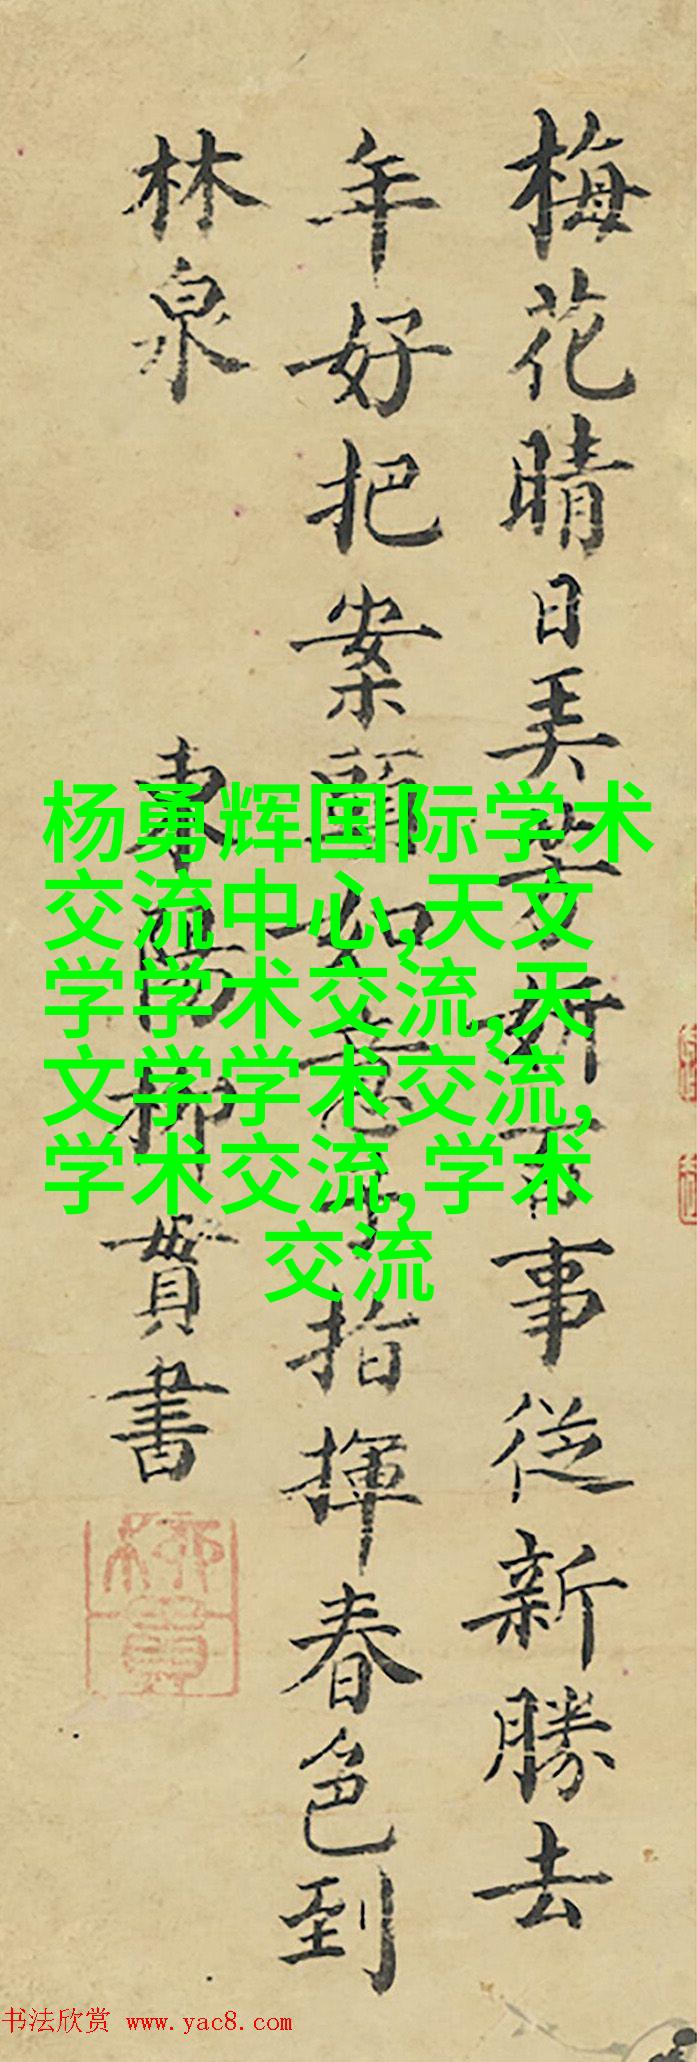 梅花晴日美芳妍百事從新勝去
年好把案頭如意子指揮春色到
林泉
東陽柳貫書
柳貫
杨勇辉国际学术
交流中心,天文
学学术交流,天
文学学术交流,
学术交流,学术
交流
书法欣赏 www.yac8.com